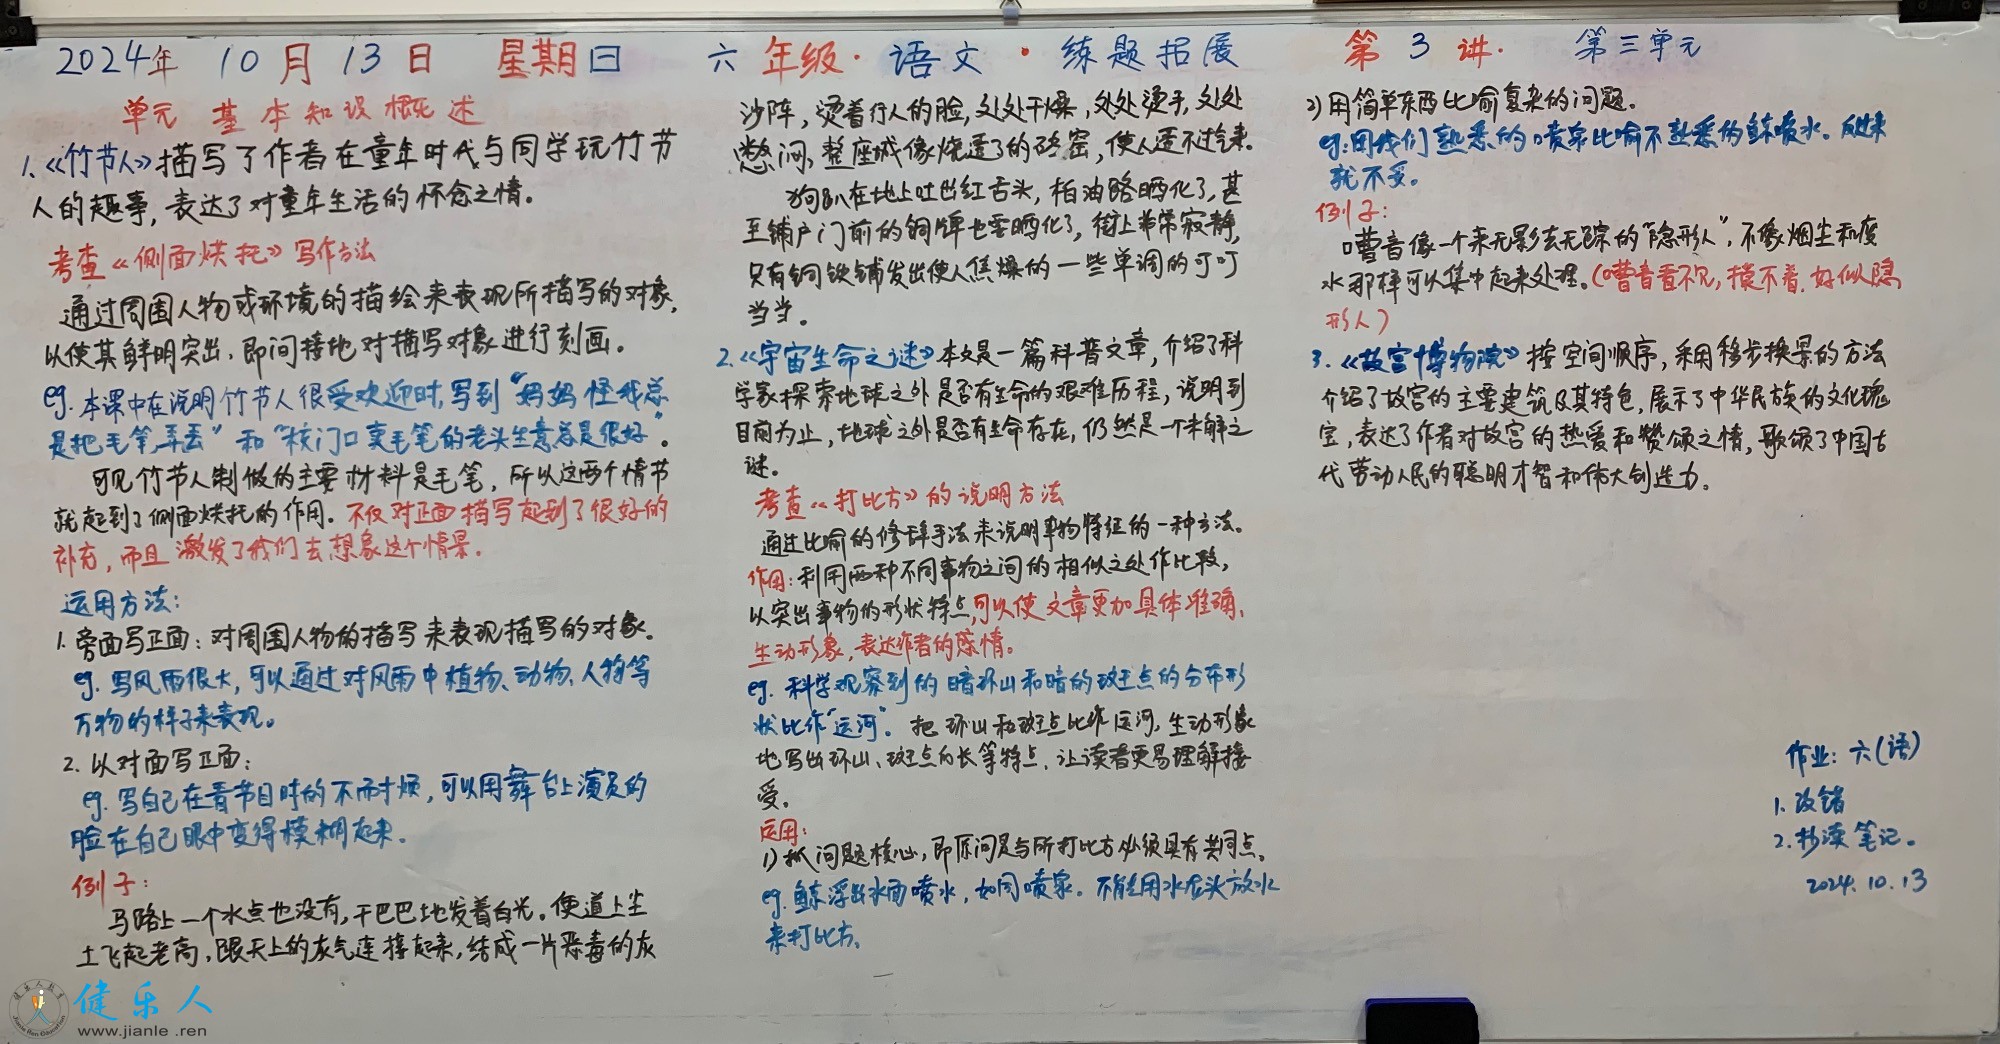 2024年 10月13日 星期日 六年级·语文·练题拓展 第3讲· 第三单元
单元基本知识概述
1.《竹节人》描写了作者在童年时代与同学玩竹节
人的趣事，表达了对童年生活的怀念之情。
考查《侧面烘托》写作方法
通过周围人物或环境的描绘来表现所描写的对象，
以使其鲜明突出，即间接地对描写对象进行刻画。
eg.本课中在说明竹节人很受欢迎时，写到“妈妈怪我总
是把毛笔弄丢”和“校门口卖毛笔的老头生意总是很好”。
可见竹节人制做的主要材料是毛笔，所以这两个情节
就起到了侧面烘托的作用。不仅对正面描写起到了很好的
补充，而且激发了我们去想象这个情景。
运用方法：
1.旁面写正面：对周围人物的描写来表现描写的对象。
eg.写风雨很大，可以通过对风雨中植物、动物、人物等
万物的样子来表现。
2.以对面写正面：
eg.写自己在看节目时的不耐烦，可以用舞台上演员的
脸在自己眼中变得模糊起来。
例子：
马路上一个水点也没有，干巴巴地发着白光。便道上尘
土飞起老高，跟天上的灰气连接起来，结成一片恶毒的灰
沙阵，烫着行人的脸，处处干燥，处处烫手，处处
憋闷，整座城像烧透了的砖窑，使人透不过气来。
狗趴在地上吐出红舌头，柏油路晒化了，甚
至铺户门前的铜牌也要晒化了，街上非常寂静，
只有铜铁铺发出使人焦燥的一些单调的叮叮
当当。
2.《宇宙生命之谜》本文是一篇科普文章，介绍了科
学家探索地球之外是否有生命的艰难历程，说明到
目前为止，地球之外是否有生命存在，仍然是一个未解之
谜。
考查《打比方》的说明方法
通过比喻的修辞手法来说明事物特征的一种方法。
作用：利用两种不同事物之间的相似之处作比较，
以突出事物的形状特点，可以使文章更加具体准确、
生动形象，表达作者的感情。
eg.科学观察到的暗环山和暗的斑点的分布形
状比作“运河”。把环山和斑点比作运河，生动形象
地写出环山、斑点的长等特点，让读者更易理解接
受。
运用：
1）抓问题核心，即原问题与所打比方必须具有共同点。
eg.鲸浮出水面喷水，如同喷泉。不能用水龙头放水
来打比方。
2）用简单东西比喻复杂的问题。
eg:用我们熟悉的喷泉比喻不熟悉的鲸喷水。反过来
就不妥。
例子：
嘈音像一个来无影去无踪的“隐形人”，不像烟尘和废
水那样可以集中起来处理。（嘈音看不见，摸不着，好似隐
形人）
3.《故宫博物院》按空间顺序，采用移步换景的方法
介绍了故宫的主要建筑及其特色，展示了中华民族的文化瑰
宝，表达了作者对故宫的热爱和赞颂之情，歌颂了中国古
代劳动人民的聪明才智和伟大创造力。
作业：六（语）
1.改错
2.抄读笔记。
2024.10.13
健乐人
www.jianle.ren